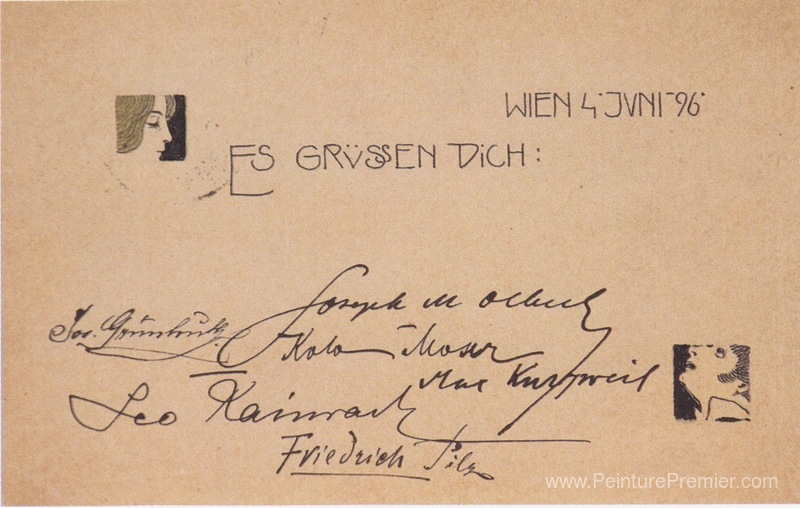 WIEN 4·JVNI·96·
ES GRÜSSEN DICH:
Joseph M Olbrich
Jos. Grünhut
Kolo Moser
Max Kurzweil
Leo Kainradl
Friedrich Pilz
www.PeinturePremier.com